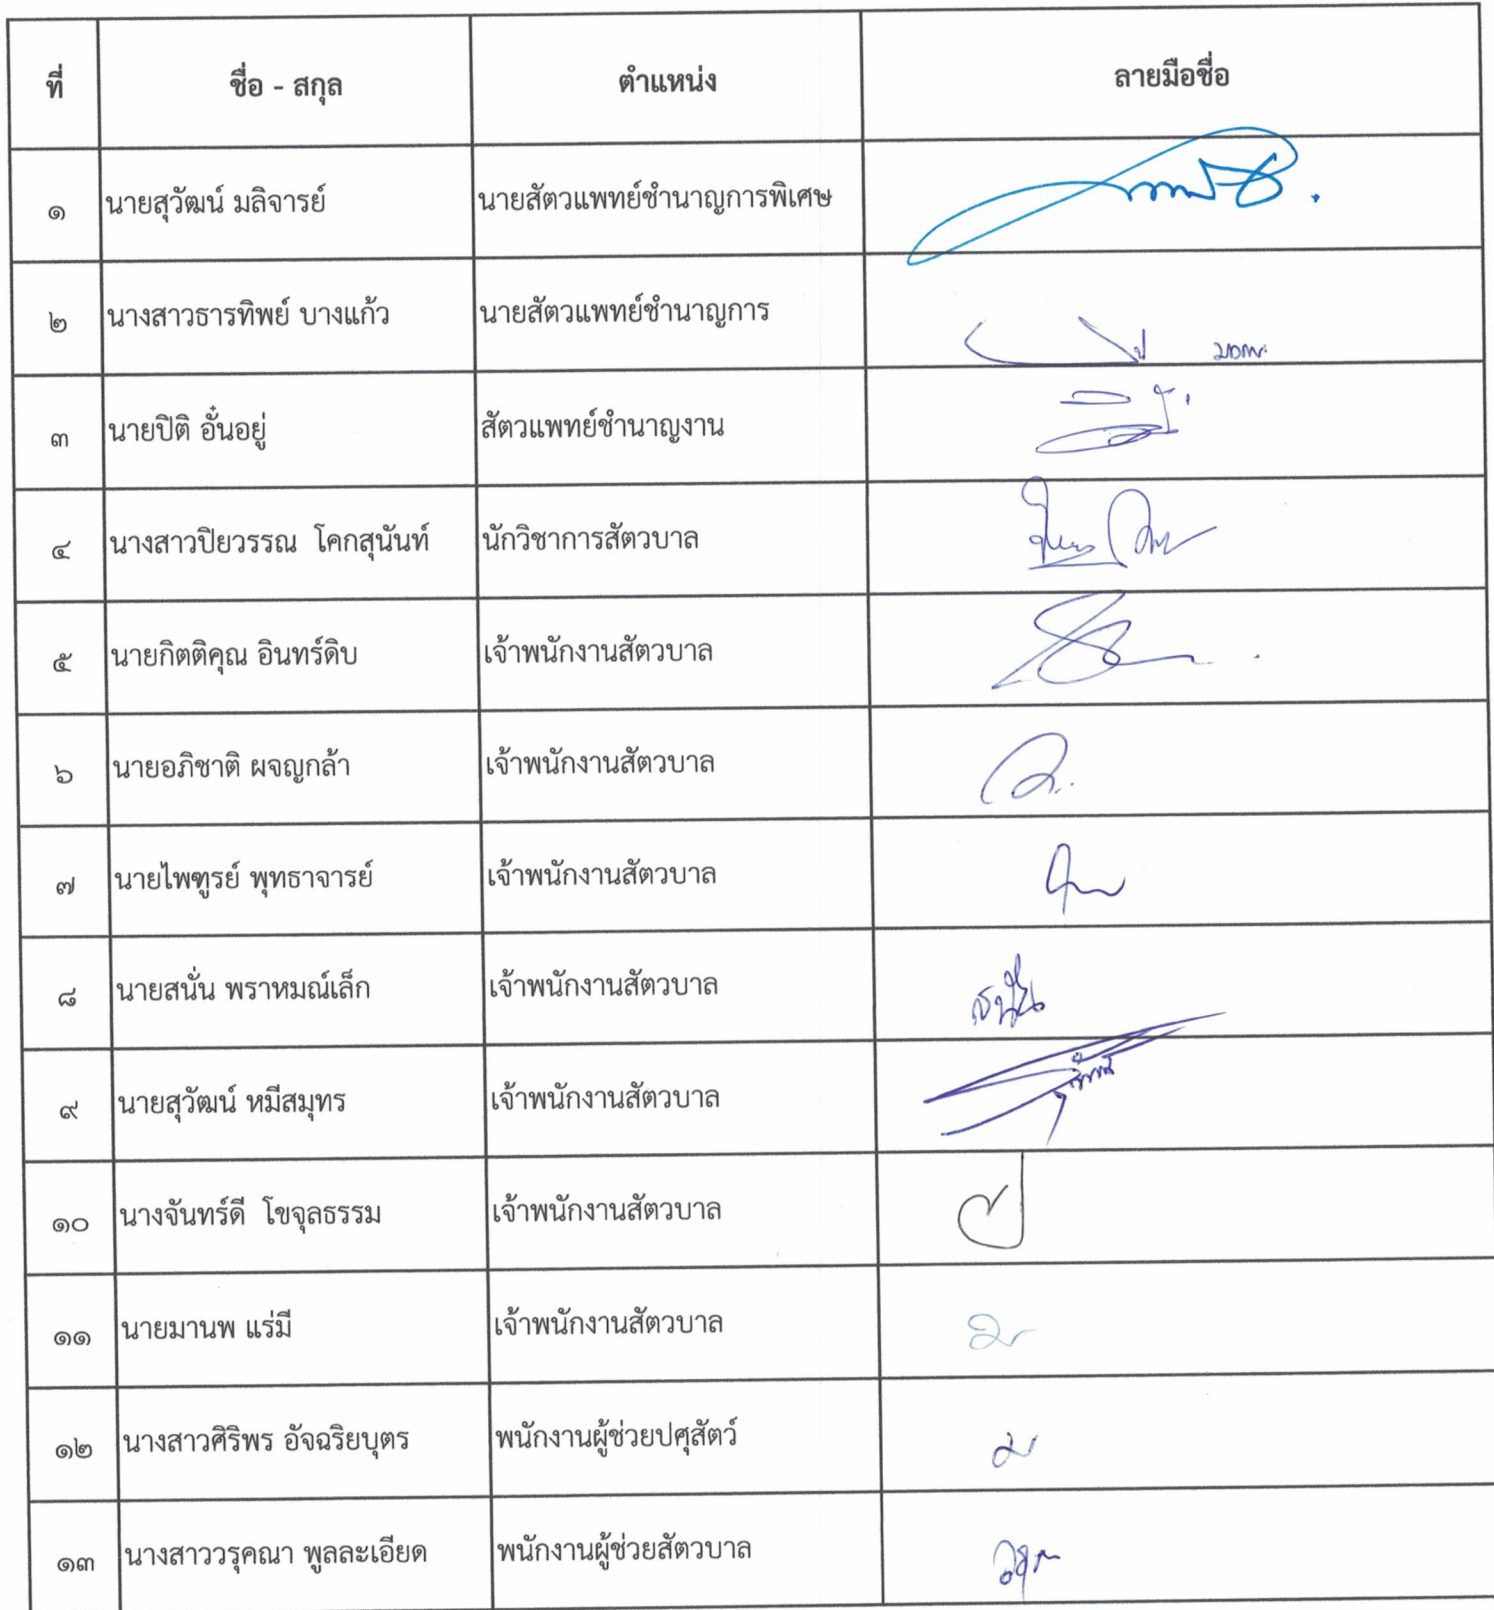 ที่ ชื่อ - สกุล ตำแหน่ง ลายมือชื่อ
๑ นายสุวัฒน์ มลิจารย์ นายสัตวแพทย์ชำนาญการพิเศษ
๒ นางสาวธารทิพย์ บางแก้ว นายสัตวแพทย์ชำนาญการ
๓ นายปิติ อั๋นอยู่ สัตวแพทย์ชำนาญงาน
๔ นางสาวปิยวรรณ โคกสุนันท์ นักวิชาการสัตวบาล
๕ นายกิตติคุณ อินทร์ดิบ เจ้าพนักงานสัตวบาล
๖ นายอภิชาติ ผจญกล้า เจ้าพนักงานสัตวบาล
๗ นายไพฑูรย์ พุทธาจารย์ เจ้าพนักงานสัตวบาล
๘ นายสนั่น พราหมณ์เล็ก เจ้าพนักงานสัตวบาล สนั่น
๙ นายสุวัฒน์ หมีสมุทร เจ้าพนักงานสัตวบาล
๑๐ นางจันทร์ดี โขจุลธรรม เจ้าพนักงานสัตวบาล
๑๑ นายมานพ แร่มี เจ้าพนักงานสัตวบาล
๑๒ นางสาวศิริพร อัจฉริยบุตร พนักงานผู้ช่วยปศุสัตว์
๑๓ นางสาววรุคณา พูลละเอียด พนักงานผู้ช่วยสัตวบาล